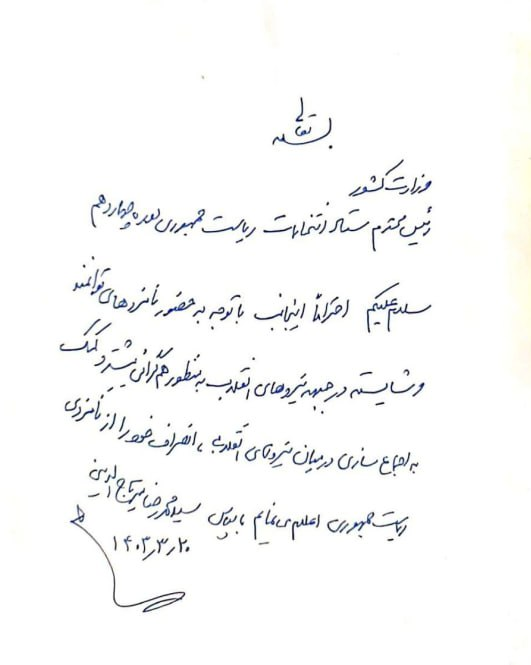 بسمه تعالی
وزارت کشور
رئیس محترم ستاد انتخابات ریاست جمهوری دوره چهاردهم
سلام علیکم احتراماً اینجانب با توجه به حضور نامزدهای توانمند
و شایسته در جبهه نیروهای انقلاب به منظور هم گرائی بیشتر و کمک
به اجماع سازی در میان نیروهای انقلاب، انصراف خود را از نامزدی
ریاست جمهوری اعلام می نمایم با سپاس سید محمدرضا میرتاج الدینی
۱۴۰۳٫۳٫۲۰